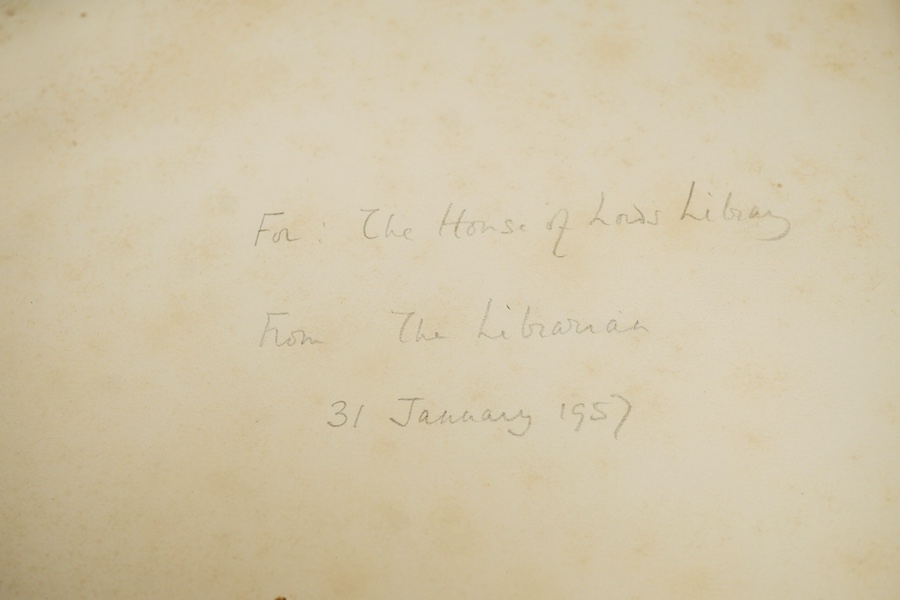 For: The House of Lords Library
From The Librarian
31 January 1957